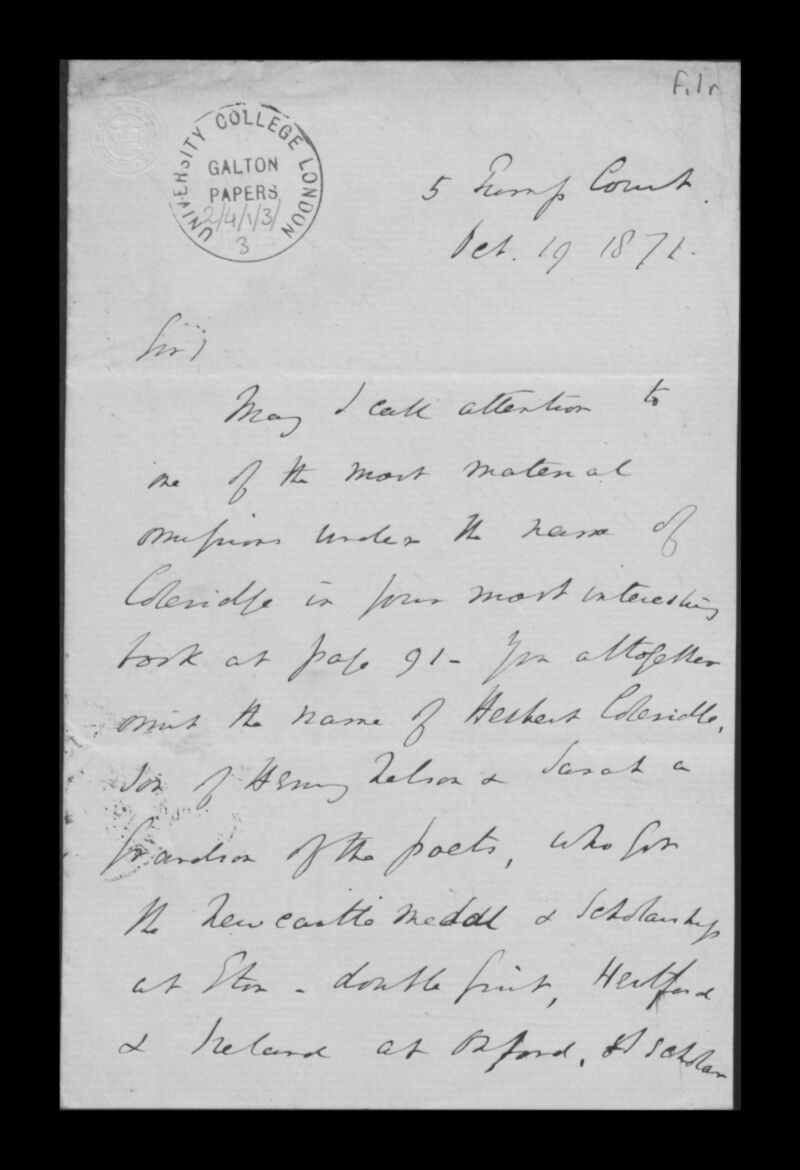 f.1r
UNIVERSITY COLLEGE LONDON
GALTON
PAPERS
2/4/1/3/
3
5 Court.
Oct. 19 1871.
Sir/
May I call attention to
one of the most material
omissions under the name of
Coleridge in your most interesting
book at page 91 - You altogether
omit the name of Herbert Coleridge,
son of Henry Nelson & Sarah a
Grandson of the poets, who got
the Newcastle Meddl & Scholarship
at Eton - double first, Hertford
& Ireland at Oxford, A scholar